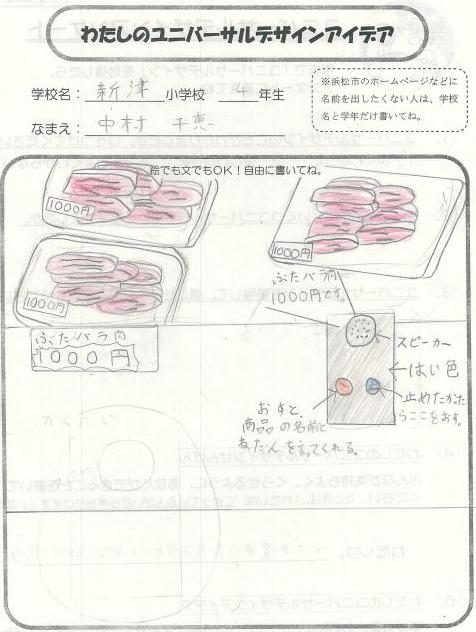 わたしのユニバーサルデザインアイデア
学校名：新津小学校 4年生
なまえ：中村 千恵
※浜松市のホームページなどに
名前を出したくない人は、学校
名と学年だけ書いてね。
絵でも文でもOK！自由に書いてね。
1000円
1000円
1000円
ぶたバラ肉
1000円です。
ぶたバラ肉
1000円
スピーカー
はい色
止めたかた
らここをおす。
おすと、
商品の名前と
ねだんを言ってくれる。